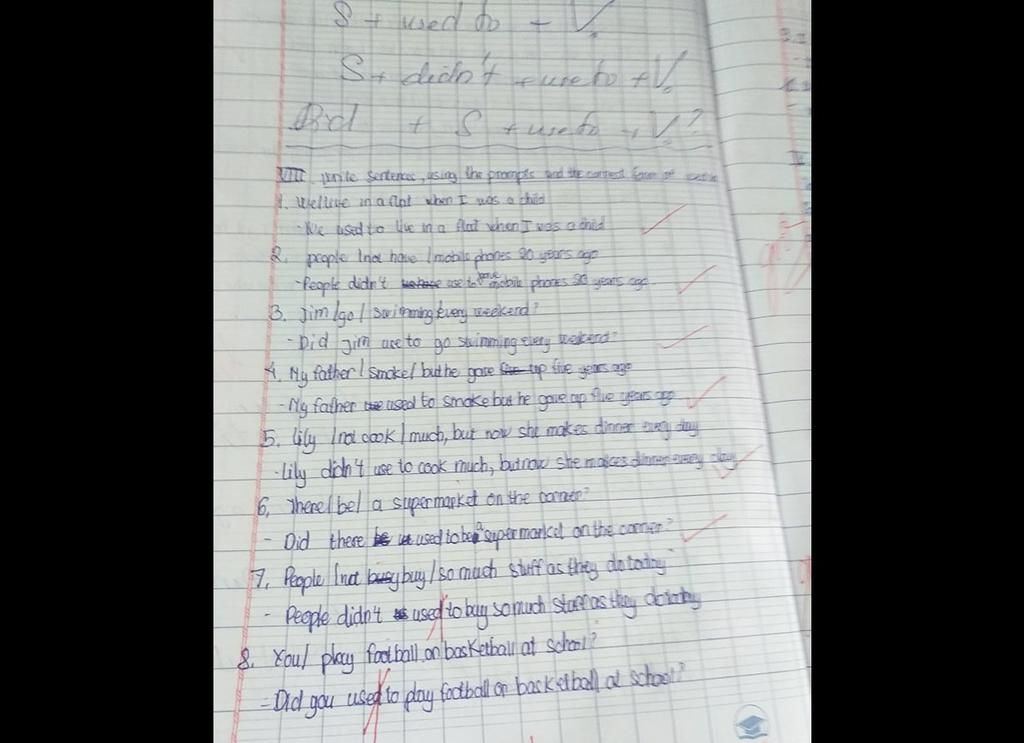 S + used to + V.
S + didn't + use to + V.
Did + S + use to + V.?
VIII. Write sentences, using the prompts and the correct form of
1. We/live in a flat when I was a child
- We used to live in a flat when I was a child
2. people /not have /mobile phones 20 years ago
- People didn't use to have mobile phones 20 years ago.
3. Jim /go / swimming every weekend?
- Did Jim use to go swimming every weekend?
4. My father / smoke / but he gave up five years ago
- My father used to smoke but he gave up five years ago
5. Lily /not cook / much, but now she makes dinner every day
- Lily didn't use to cook much, but now she makes dinner every day
6. There/ be/ a supermarket on the corner?
- Did there used to be a supermarket on the corner?
7. People /not buy / so much stuff as they do today
- People didn't used to buy so much stuff as they do today
8. You/ play football on basketball at school?
- Did you used to play football or basketball at school?